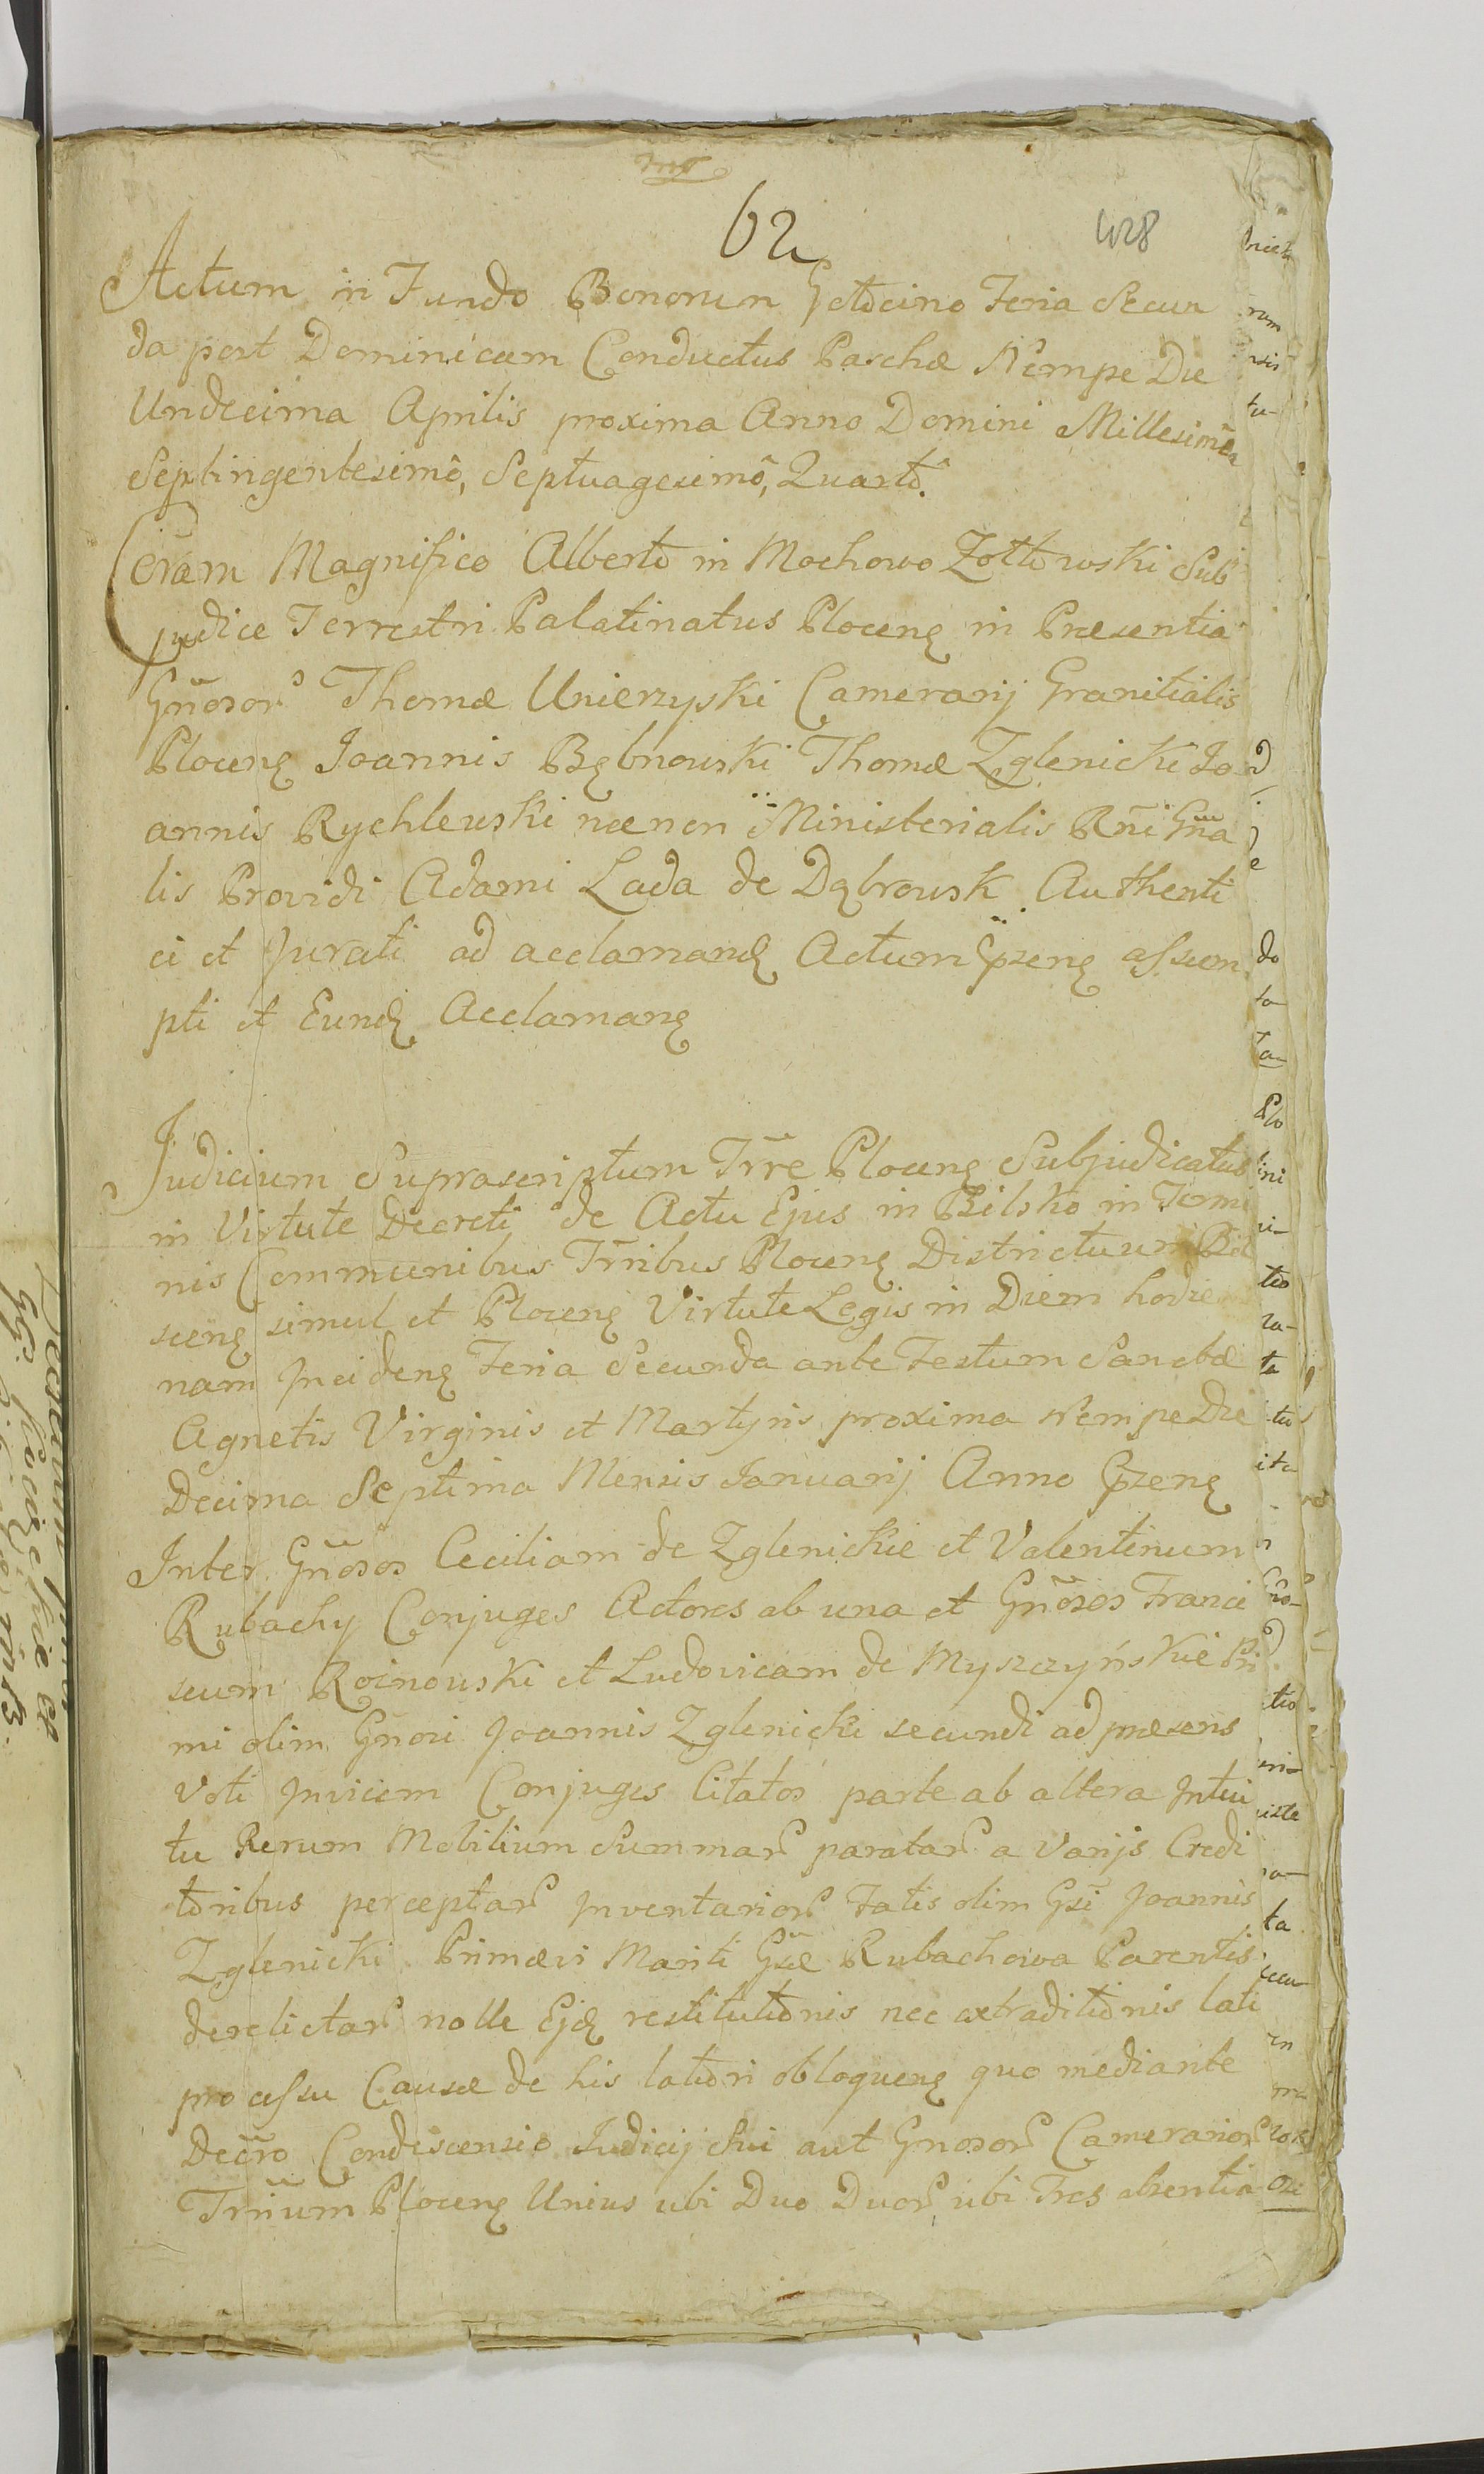 62
428
Actum in Fundo Bonorum Gotocino Feria Secun
da post Dominicam Conductus Paschæ Nempe Die
Undecima Aprilis proxima Anno Domini Millesimô
Septingentesimô, Septuagesimô, Quartô.
Coram Magnifico Alberto in Mochowo Zołtowski Sub
judice Terrestri Palatinatus Plocenę in Præsentia
Gñosor Thomæ Unierzyski Camerarij Granitialis
Plocenę Joannis Bębnowski Thomæ Zglenicki Jo
annis Rychlewski necnon Ministerialis Rñi Gña
lis Providi Adami Lada de Dąbrowsk Authenti
ci et Jurati ad acclamandę Actum pzenę assum
pti et Eundę Acclamanę
Judicium Suprascriptum Trre Plocenę Subjudicatus
in Virtute Decreti de Actu Ejus in Bilsko in Termi
nis Communibus Trribus Plocenę Districtuum Biel
scenę simul et Plocenę Virtute Legis in Diem hodier
nam Incidenę Feria Secunda ante Festum Sanctæ
Agnetis Virginis et Martyris proxima Nempe Die
Decima Septima Mensis Januarij Anno pzenę
Inter Gñosos Ceciliam de Zglenickie et Valentinum
Rubachy Conjuges Actores ab una et Gñosos Franci
scum Roinowski et Ludovicam de Myszczyńskie Pri
mi olim Gñosi Joannis Zglenicki secundi ad præsens
Voti Invicem Conjuges Citatos parte ab altera Intui
tu Rerum Mobilium Summar paratar a Varijs Credi
toribus perceptar Inventarior Fatis olim Gsi Joannis
Zglenicki Primævi Mariti Gsæ Rubachowa Parentis
derelictar nolle Ejdę restitutionis nec extraditionis lati
processu Causæ de his latiori obloquenę quo mediante
Decro Condescensio Judicij Sui aut Gnosor Camerarior
Trrium Plocenę Unius ubi Duo Duor ubi Tres absentia